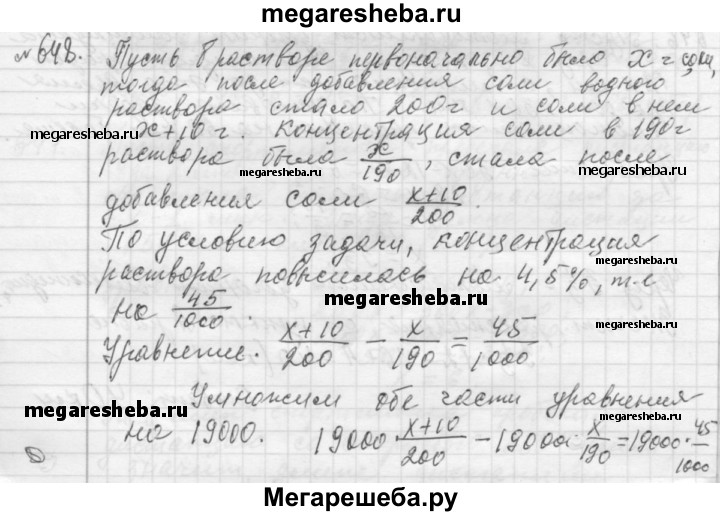 megaresheba.ru
№648. Пусть в растворе первоначально было x г соли,
тогда после добавления соли водного
раствора стало 200 г и соли в нем
megaresheba.ru x+10 г. Концентрация соли в 190 г megaresheba.ru
раствора была x/190, стала после
megaresheba.ru megaresheba.ru
добавления соли (x+10)/200.
По условию задачи, концентрация
раствора повысилась на 4,5%, т.е
на 45/1000. megaresheba.ru
Уравнение. (x+10)/200 − x/190 = 45/1000
Умножим обе части уравнения
megaresheba.ru megaresheba.ru
на 19000. 19000·(x+10)/200 − 19000·x/190 = 19000·45/1000
Мегарешеба.ру